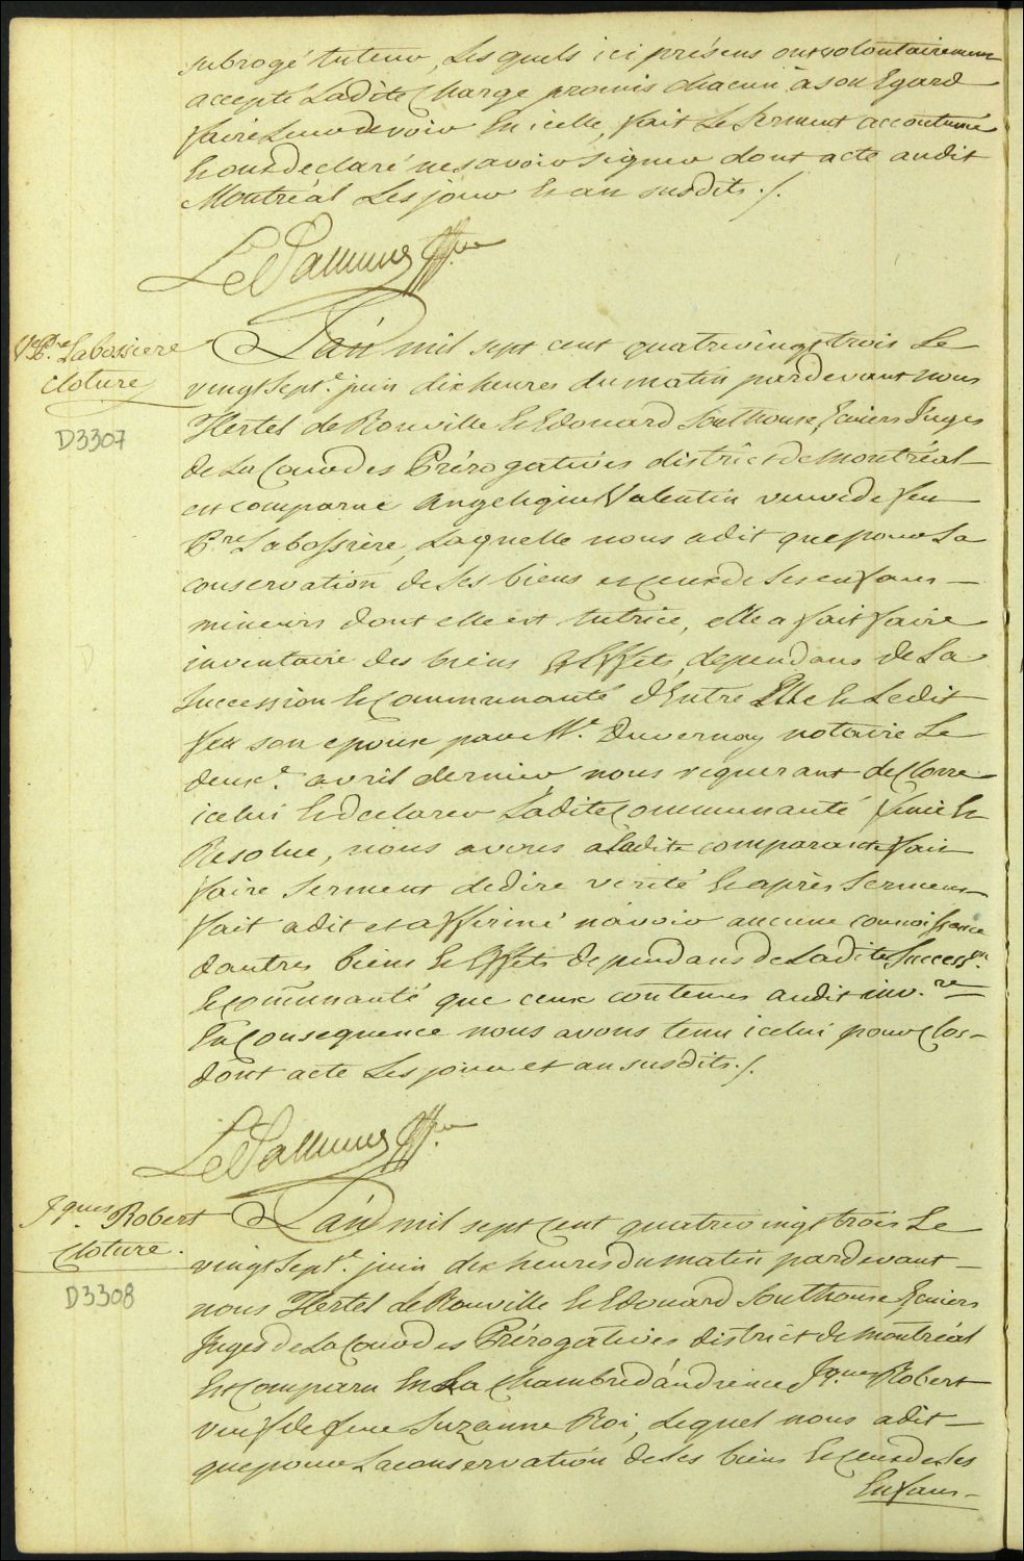 subrogé tuteur, Lesquels ici présens ont volontairement
accepté Ladite Charge promis chacun a son Egard
faire Leur devoir En icelle, fait Le Serment accoutumé
Et ont declaré ne savoir signer dont acte audit
Montréal Les jour Et an susdits ./.
LePallieur Gffier
Ve Pre Labossiere
cloture
D3307
L'an mil sept cent quatrevingt trois Le
vingt Sept.e juin dix heures du matin pardevant nous
Hertel de Rouville Et Edouard Southouse Ecuiers Juges
de La Cour des Prérogatives district de Montréal
est comparue Angelique Valentin veuve de feu
P.re Labossiere, Laquelle nous a dit que pour La
conservation de Ses biens et ceux de Ses enfans
mineurs dont elle est tutrice, elle a fait faire
inventaire des biens Et Effets dependans de La
Succession Et Communauté d'Entre Elle Et Ledit
feu son epoux par M.e Duvernay notaire Le
deux.e avril dernier nous requerant de Clorre
icelui Et declarer Ladite Communauté finie Et
Resolue, nous avons a Ladite comparante fait
faire Serment de dire verité Et après Serment
fait a dit et affirmé n'avoir aucune connoissance
d'autres biens Et Effets dependans de Ladite Success.on
Et com̃unauté que ceux contenus audit inv.re
En Consequence nous avons tenu icelui pour Clos
dont acte Les jour et an susdits ./.
LePallieur Gffier
Jques Robert
Cloture.
D3308
L'an mil sept Cent quatrevingt trois Le
vingt Sept.e juin dix heures du matin pardevant
nous Hertel de Rouville Et Edouard Southouse Ecuiers
Juges de La Cour des Prérogatives district de Montréal
Est Comparu En La Chambre d'audience Jques Robert
veuf de feue Suzanne Roi, Lequel nous a dit
que pour La conservation de Ses biens Et Ceux de Ses
Enfans